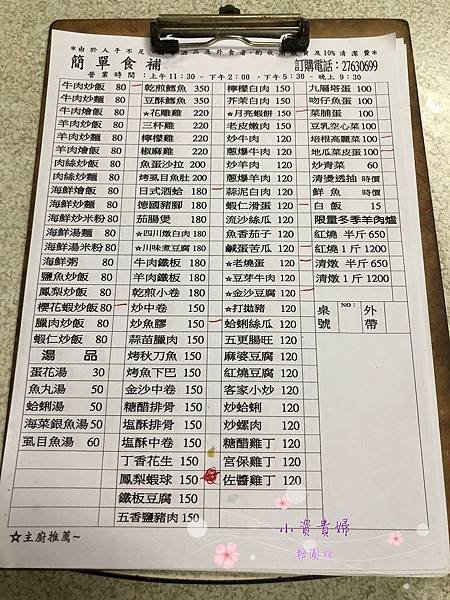 *由於人手不足 酒品及外食者,酌收服務費及10%清潔費*
簡單食補 訂購電話:27630699
營業時間:上午11:30-下午2:00 ‧下午5:30-晚上9:30
牛肉炒飯 80 乾煎鱈魚 350 檸檬白肉 150 九層塔蛋 100
牛肉炒麵 80 豆酥鱈魚 350 芥茉白肉 150 吻仔魚蛋 100
牛肉燴飯 80 ★花雕雞 220 ★月亮蝦餅 150 菜脯蛋 100
羊肉炒飯 80 三杯雞 220 老皮嫩肉 150 豆乳空心菜 100
羊肉炒麵 80 檸檬雞 220 炒牛肉 120 培根高麗菜 100
羊肉燴飯 80 椒麻雞 220 蔥爆牛肉 120 地瓜菜皮蛋 100
肉絲炒飯 80 魚蛋沙拉 200 炒羊肉 120 炒青菜 60
肉絲炒麵 80 烤虱目魚肚 200 蔥爆羊肉 120 清燙透抽 時價
海鮮燴飯 80 日式酒蛤 180 蒜泥白肉 120 鮮魚 時價
海鮮炒飯 80 德國豬腳 180 蝦仁滑蛋 120 白飯 15
海鮮炒米粉 80 茄腸煲 180 流沙絲瓜 120 限量冬季羊肉爐
海鮮湯麵 80 ★四川燉白肉 180 魚香茄子 120 紅燒 半斤 650
海鮮湯米粉 80 ★川味煮豆腐 180 鹹蛋苦瓜 120 紅燒 1斤 1200
海鮮粥 80 牛肉鐵板 180 ★老燒蛋 120 清燉 半斤 650
鹽魚炒飯 80 羊肉鐵板 180 ★豆芽牛肉 120 清燉 1斤 1200
鳳梨炒飯 80 乾煎小卷 180 ★金沙豆腐 120
櫻花蝦炒飯 80 炒中卷 150 ★打拋豬 120 桌號 NO: 外帶
臘肉炒飯 80 炒魚膘 150 蛤蜊絲瓜 120
蝦仁炒飯 80 蒜苗臘肉 150 五更腸旺 120
湯品 烤秋刀魚 150 麻婆豆腐 120
蛋花湯 30 烤魚下巴 150 紅燒豆腐 120
魚丸湯 50 金沙中卷 150 客家小炒 120
蛤蜊湯 50 糖醋排骨 150 炒蛤蜊 120
海菜銀魚湯 50 塩酥排骨 150 炒螺肉 120
虱目魚湯 60 塩酥中卷 150 糖醋雞丁 120
丁香花生 150 宮保雞丁 120
鳳梨蝦球 150 佐醬雞丁 120
鐵板豆腐 150
五香鹽豬肉 150
☆主廚推薦~
小資貴婦
粉圓妹